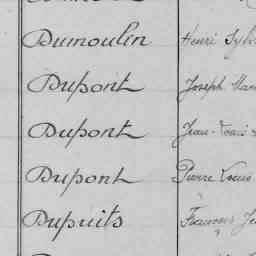 Dumoulin Henri
Dupont Joseph
Dupont Jean-Louis
Dupont Pierre Louis
Dupuits François